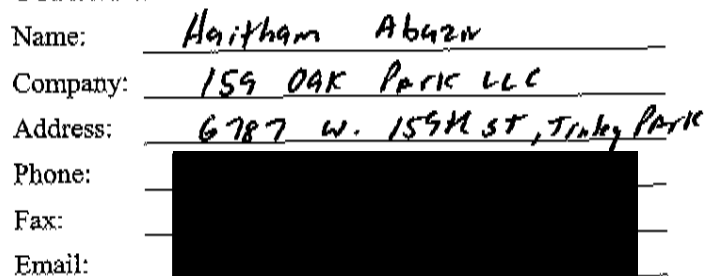 Name: Haitham Abuzir
Company: 159 OAK Park LLC
Address: 6787 W. 159th ST, Tinley Park
Phone:
Fax:
Email: